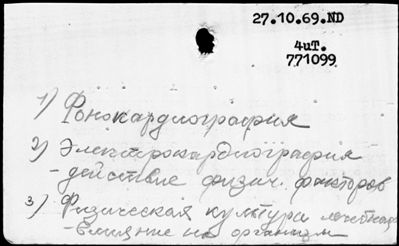 27.10.69.ND
4иТ.
771099
1) Фонокардиография
2) Электрокардиография
- действие физич. факторов
3) Физическая культура лечебная
- влияние на организм